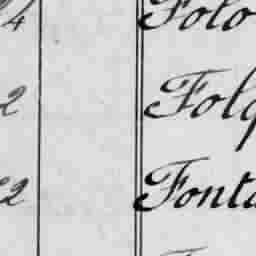 24 Folo
2 Folg
22 Fonta